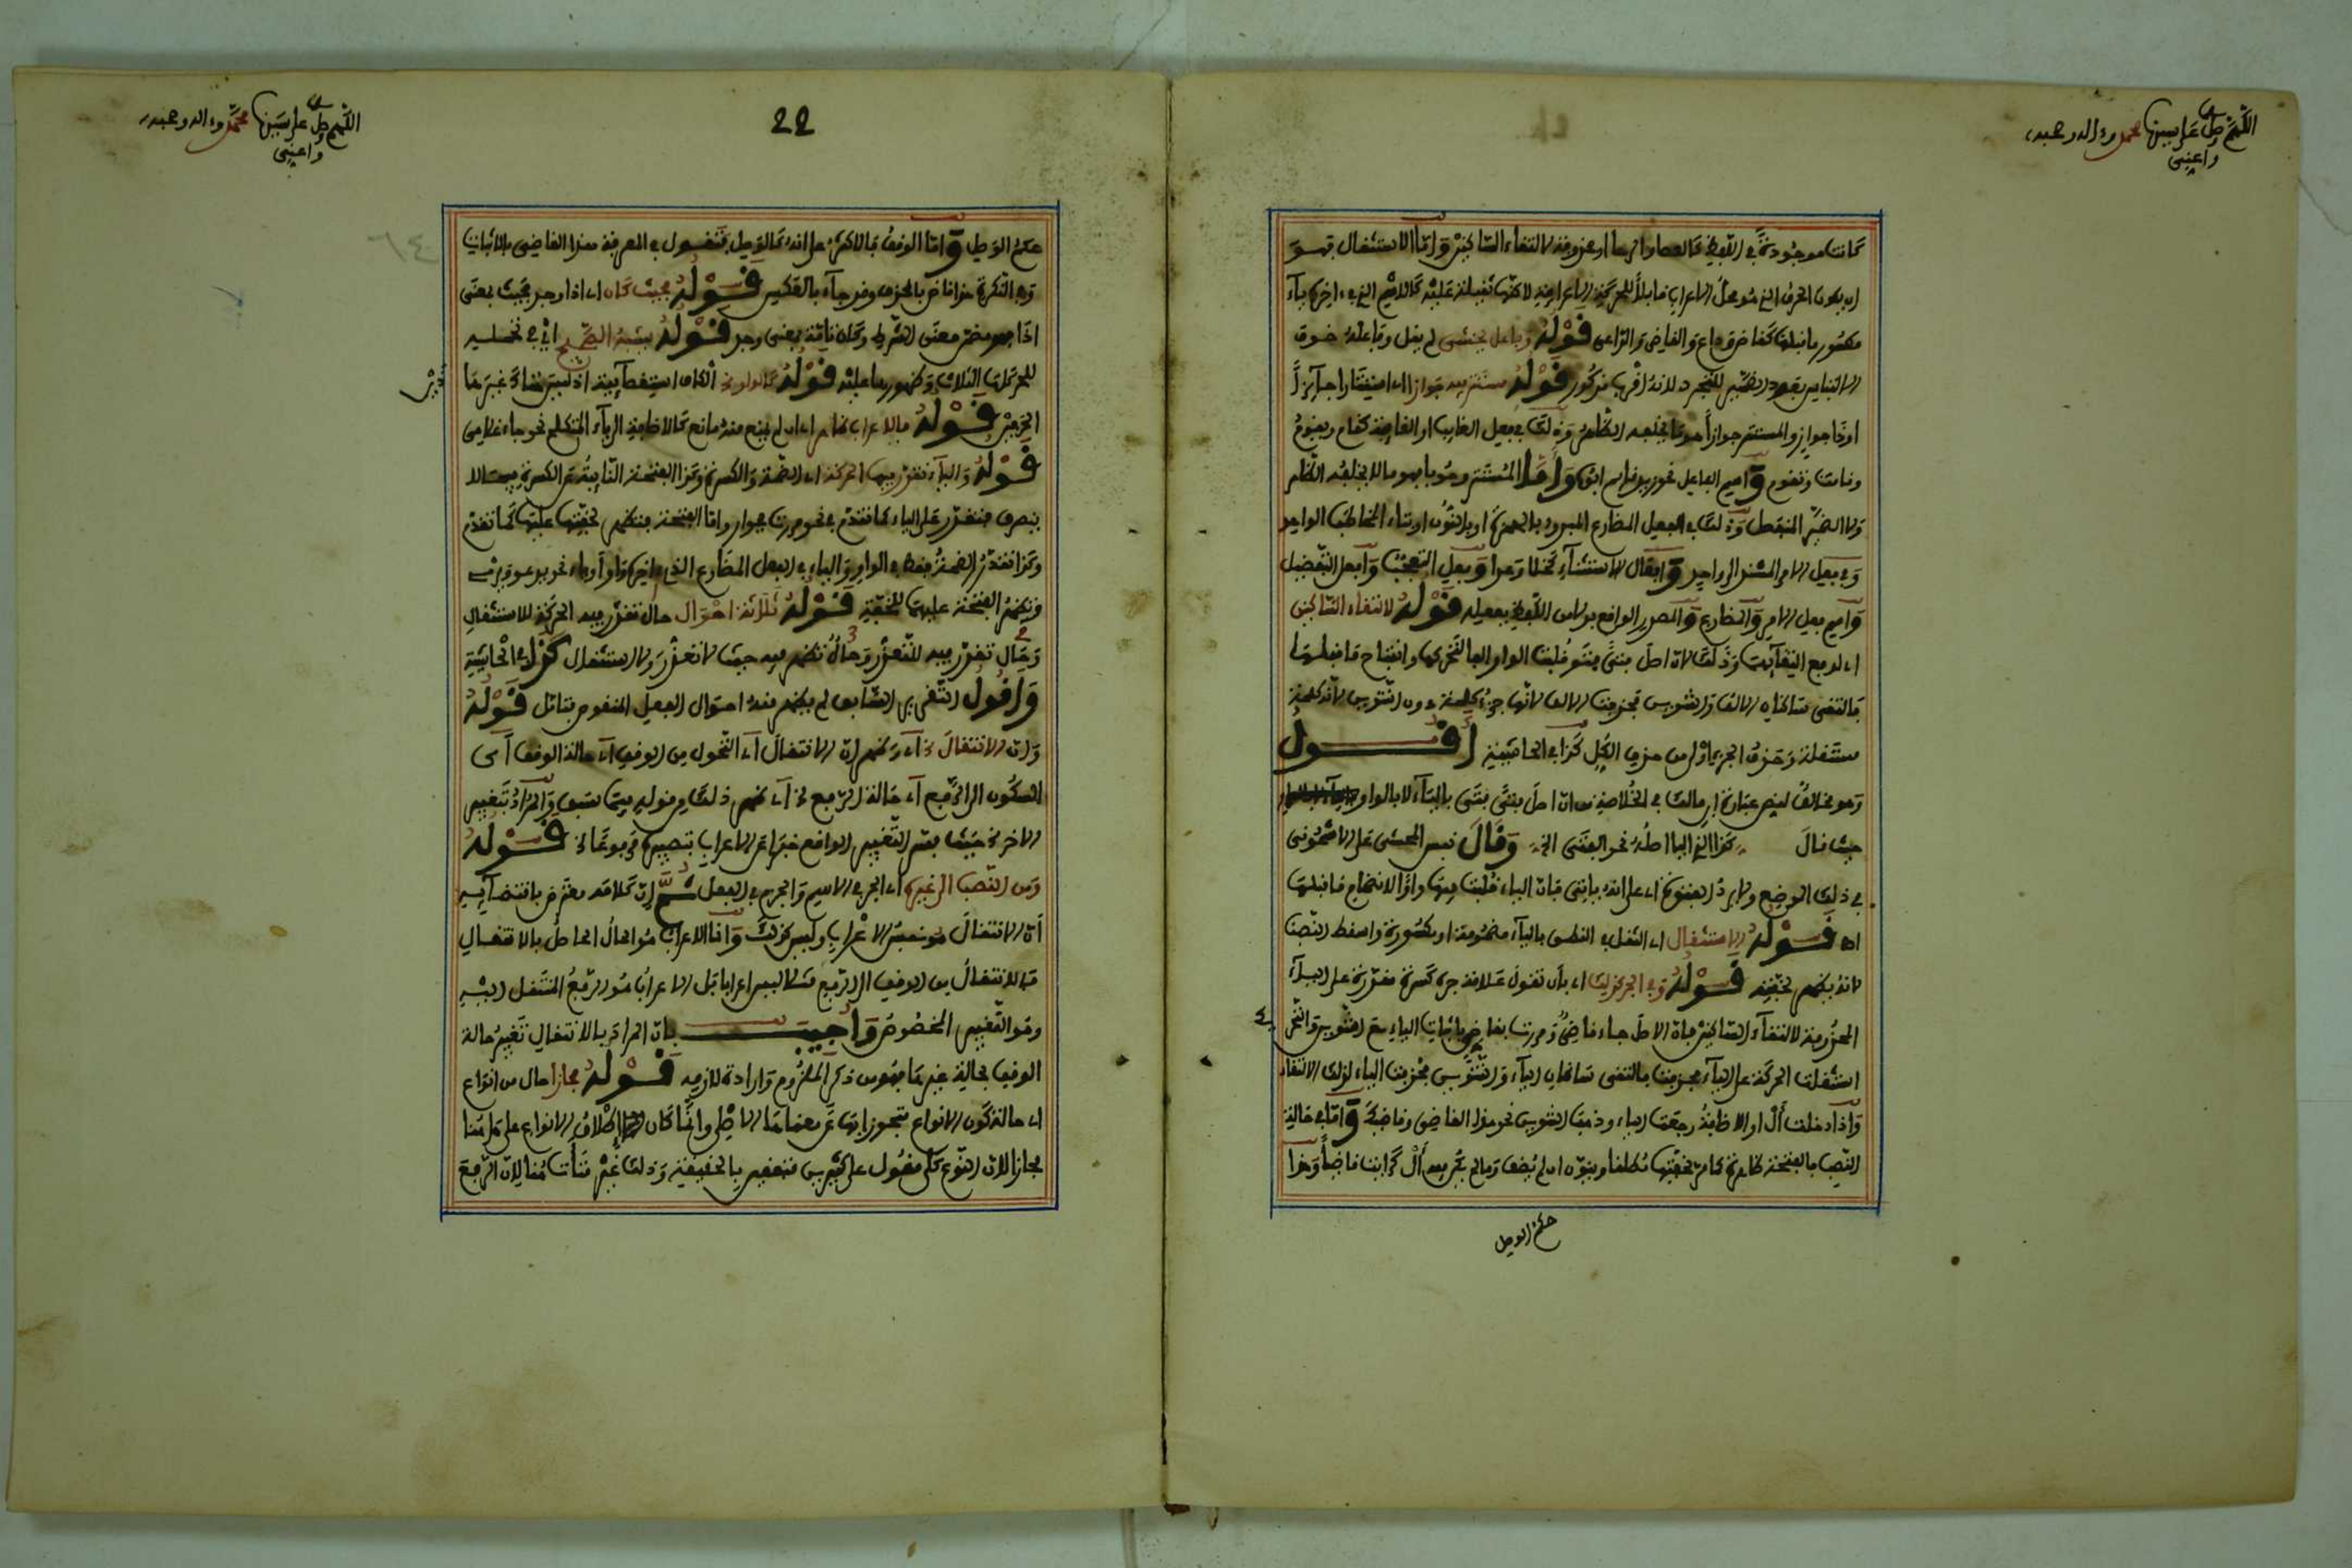 اللهم صل على سيدنا محمد وءاله وصحبه
واعني
كانت موجودة في اللفظ كالعصا والرحا او محذوفة لالتقاء الساكنين واما الاستثقال فهو
ان يكون الحرف الذي هو محل الاعراب قابلا للحركة الاعرابية لاكنها ثقيلة عليه كالاسم الذي ءاخره ياء
مكسور ما قبلها كقاض وداع والقاضي والداعي قوله وفاعل يخشى لم يقل وفاعله خوف
الالتباس بعود الضمير للمجرد لانه اقرب مذكور قوله مستتر فيه جوازا اي استتارا جائزا
او ذا جواز والمستتر جوازا هو ما يخلفه الظاهر وذلك في فعل الغايب او الغايبة كقام ويقوم
وقامت وتقوم واسم الفاعل نحو زيد قايم ابوه واما المستتر وجوبا فهو ما لا يخلفه الظاهر
ولا الضمير المنفصل وذلك في الفعل المضارع المبدوء بالهمزة او بالنون او بتاء المخاطب الواحد
وفي فعل الامر المسند الى واحد وافعال الاستثناء كخلا وعدا وفعل التعجب وافعل التفضيل
واسم فعل الامر والمضارع والمصدر الواقع بدلا من اللفظ بفعله قوله لالتقاء الساكنين
وذلك لان اصل فتى فتو قلبت الواو الفا لتحركها وانفتاح ما قبلها
فالتقى ساكنان الالف والتنوين فحذفت الالف لانها جزء كلمة دون التنوين لانه كلمة
مستقلة وحذف الجزء اولى من حذف الكل كذا في الحاشية اقول
وهو مخالف لنص عبارة ابن مالك في الخلاصة من ان اصل فتى فتي بالياء لا بالواو
حيث قال كذا الذي اليا اصله نحو الفتى الخ وقال نفس المحشي على الاشموني
في ذلك الموضع ولا يرد الفتوة اي على انه يائي فان الياء قلبت فيها واوا لانضمام ما قبلها
اه قوله الاستثقال اي الثقل في النطق بالياء مضمومة او مكسورة واسقط النصب
لانه يظهر لخفته قوله وفي الجر كذلك اي بان تقول علامة جره كسرة مقدرة على الياء
المحذوفة لالتقاء الساكنين فان الاصل جاء قاضي ومررت بقاضي باثبات الياء مع التنوين
استثقلت الحركة على الياء فحذفت فالتقى ساكنان الياء والتنوين فحذفت الياء لذلك الالتقاء
واذا دخلت ال او الاضافة رجعت الياء وذهب التنوين نحو هذا القاضي وقاضيك واما في حالة
النصب فالفتحة ظاهرة كما مر لخفتها مطلقا وينون ان لم يضف ولم تكن فيه ال كرايت قاضيا وهذا
حكم الوصل
22
اللهم صل على سيدنا محمد وءاله وصحبه
واعني
حكم الوصل واما الوقف فالاكثر على انه كالوصل فتقول في المعرفة هذا القاضي بالاثبات
وفي النكرة هذا قاض بالحذف وقد جاء بالعكس قوله بحيث كان اي اذا وجد فحيث بمعنى
اذا مضمن معنى الشرط وكان تامة بمعنى وجد قوله يشبه الصحيح اي في تحمله
للحركات الثلاث وظهورها عليه قوله كالواو الكاف استقصائية اذ ليس هناك غير هاذين
الحرفين قوله فالاعراب ظاهر اي ان لم يمنع منه مانع كالاضافة الى ياء المتكلم نحو جاء غلامي
قوله والياء تقدر فيها الحركة اي الضمة والكسرة وكذا الفتحة النايبة عن الكسرة فيما لا
ينصرف فتقدر على الياء كما تقدم في نحو مررت بجوار واما الفتحة فتظهر لخفتها عليها كما تقدم
وكذا تقدر الضمة فقط في الواو والياء في الفعل المضارع الذي ءاخره واو او ياء نحو يدعو ويرمي
وتظهر الفتحة عليهما للخفة قوله ثلاثة احوال حال تقدر فيه الحركة للاستثقال
وحال تقدر فيه للتعذر وحال تظهر فيه حيث لا تعذر ولا استثقال كذا في الحاشية
واقول التقرير السابق لم يظهر منه احوال الفعل المنقوص فتامل قوله
وان الانتقال الخ اي وظهر ان الانتقال اي التحول من الوقف اي حالة الوقف اي
السكون الى الرفع اي حالة الرفع الخ اي ظهر ذلك من قوله فيما سبق والمراد تغيير
الاخر الخ حيث فسر التغيير الواقع خبرا عن الاعراب بتصييره مرفوعا الخ قوله
ومن النصب الى غيره اي الجر في الاسم والجزم في الفعل ثم ان كلامه معترض باقتضائه
ان الانتقال هو نفس الاعراب وليس كذلك وانما الاعراب هو الحال الحاصل بالانتقال
فالانتقال من الوقف الى الرفع مثلا ليس اعرابا بل الاعراب هو الرفع المنتقل اليه
وهو التغيير المخصوص واجيب بان المراد بالانتقال تغيير حالة
الوقف بحالة غيرها فهو من ذكر الملزوم وارادة لازمه قوله مجازا حال من انواع
اي حالة كون الانواع متجوزا بها عن معناها الاصلي وانما كان اطلاق الانواع على ما هنا
مجازا لان النوع كلي مقول على كثيرين متفقين بالحقيقة وذلك غير متات هنا لان الرفع